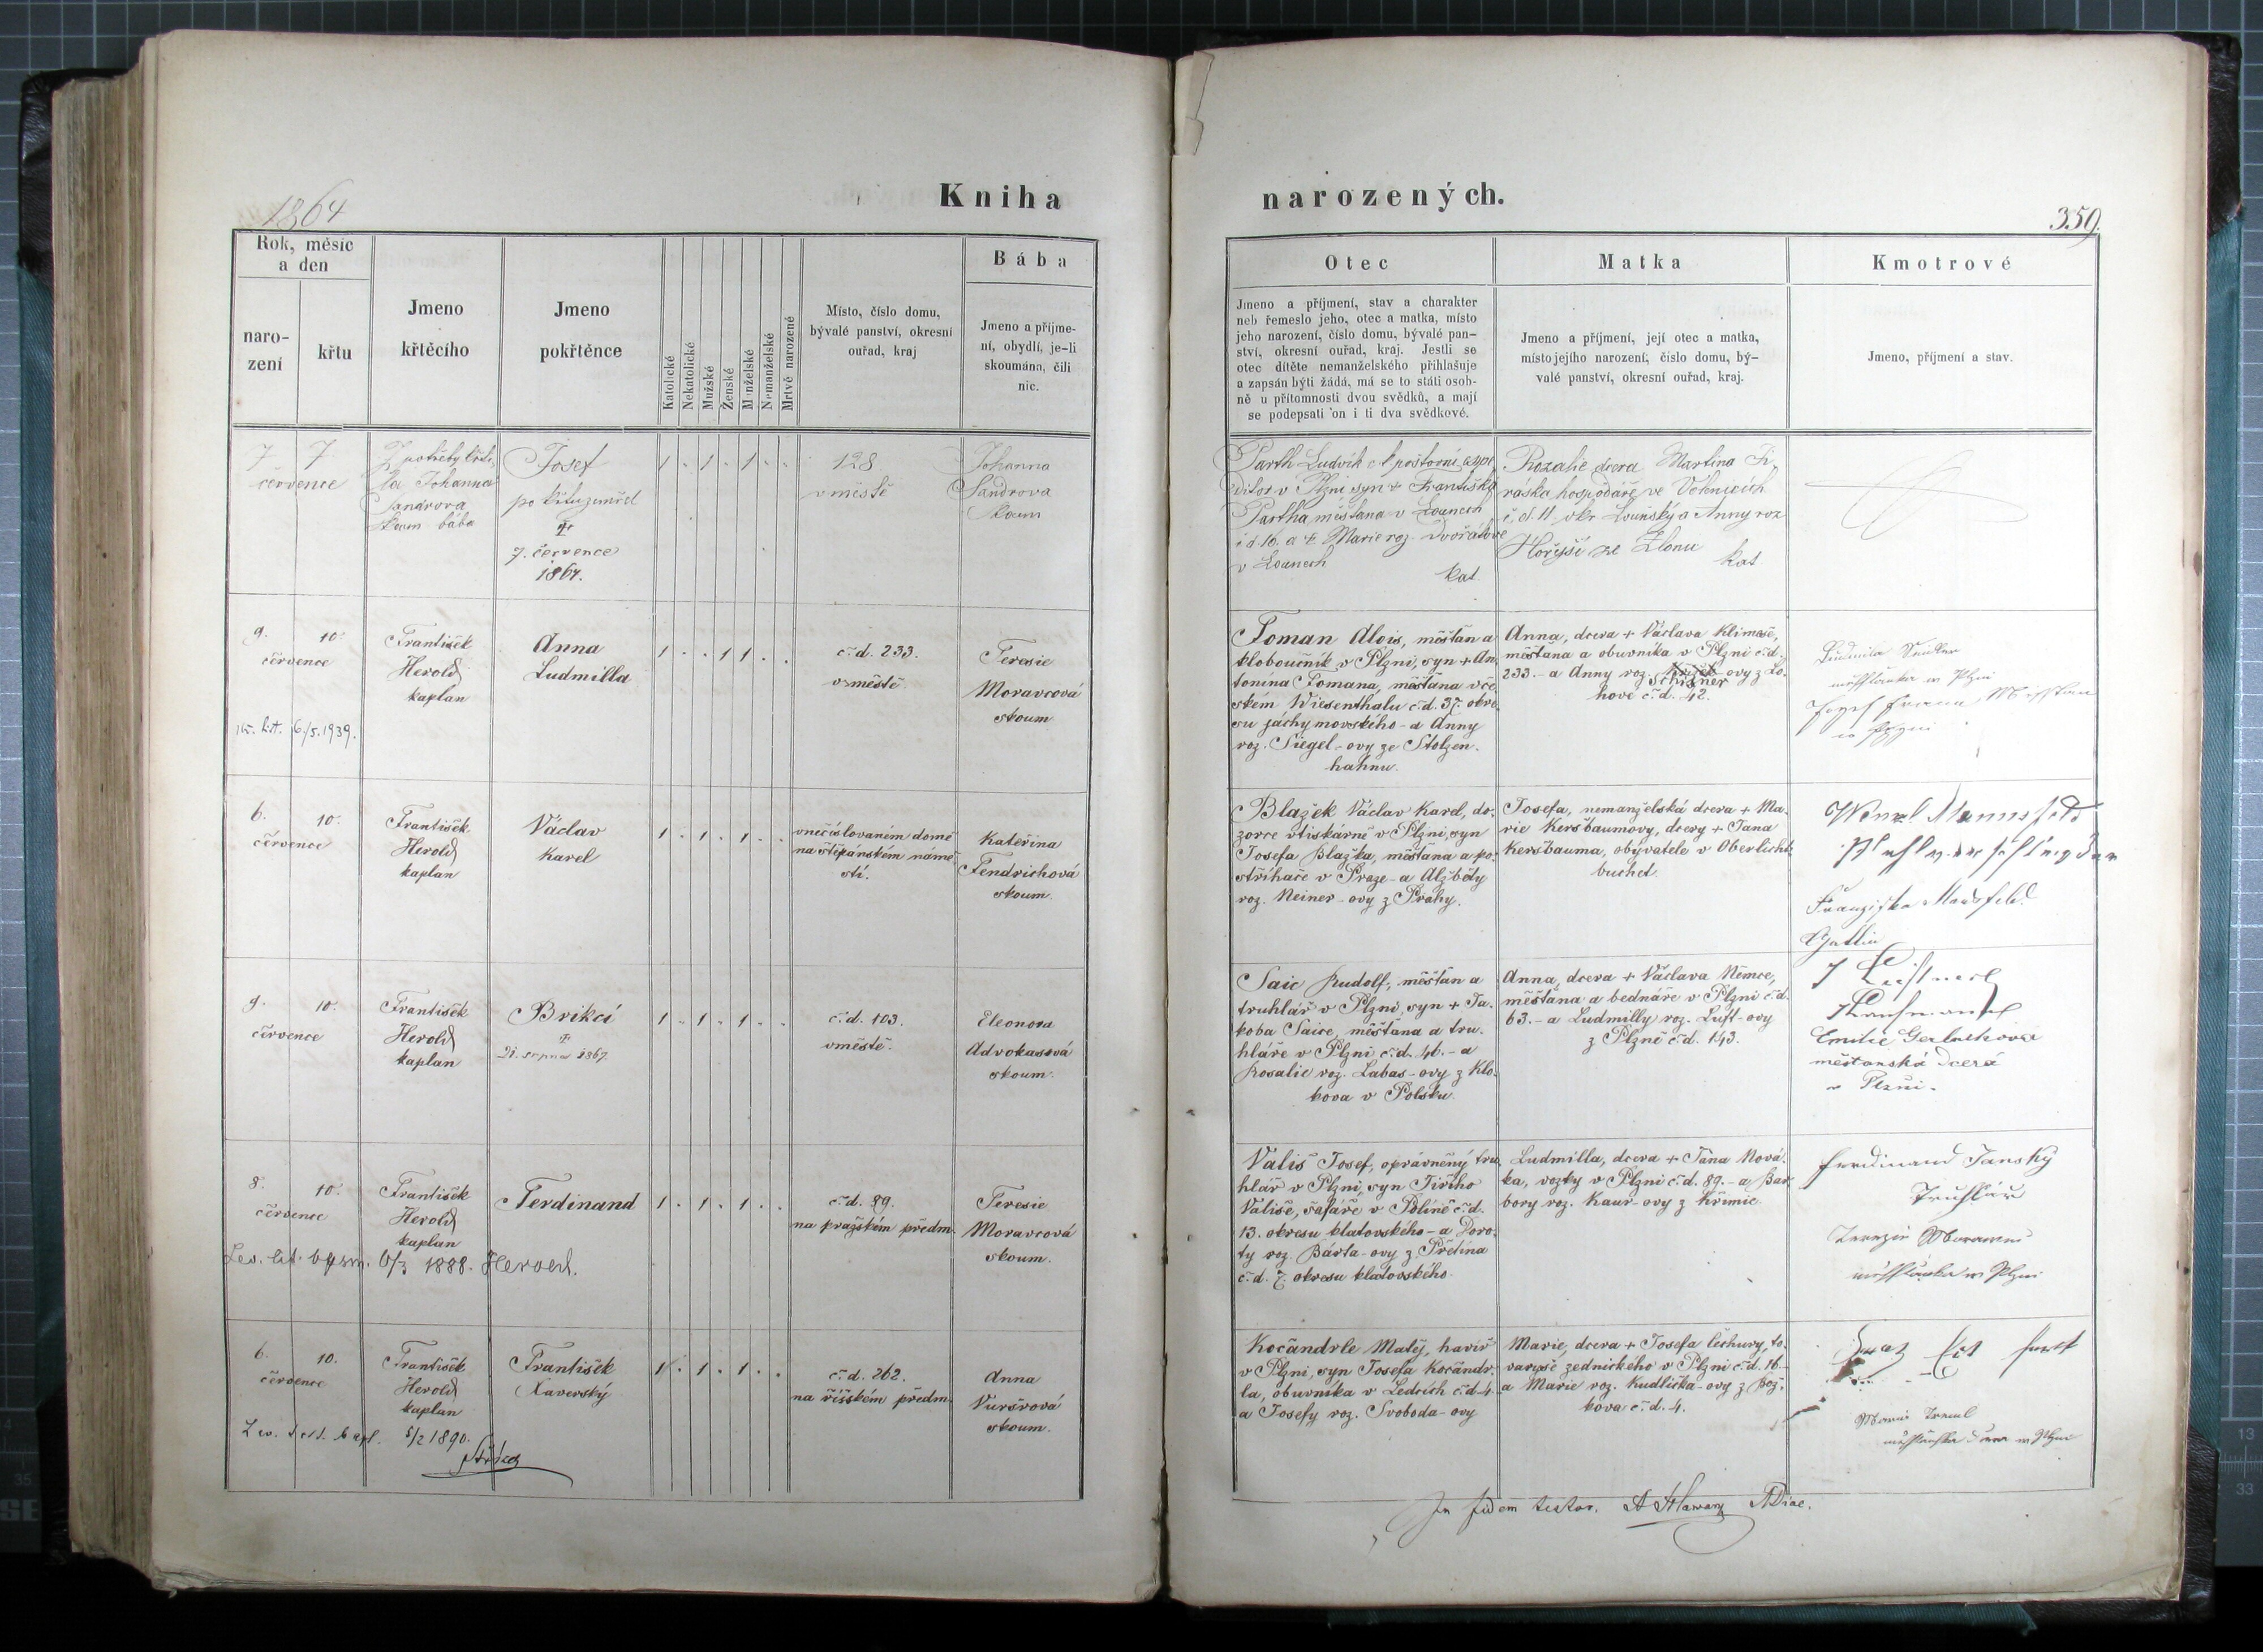 1864
Kniha
narozených.
359.
Rok, měsíc
a den
naro-
zení
křtu
Jmeno
křtěcího
Jmeno
pokřtěnce
Katolické
Nekatolické
Mužské
Ženské
Manželské
Nemanželské
Mrtvě narozené
Místo, číslo domu,
bývalé panství, okresní
ouřad, kraj
Bába
Jmeno a příjme-
ní, obydlí, je-li
skoumána, čili
nic.
Otec
Jmeno a příjmení, stav a charakter
neb řemeslo jeho, otec a matka, místo
jeho narození, číslo domu, bývalé pan-
ství, okresní ouřad, kraj. Jestli se
otec dítěte nemanželského přihlašuje
a zapsán býti žádá, má se to státi osob-
ně u přítomnosti dvou svědků, a mají
se podepsati on i ti dva svědkové.
Matka
Jmeno a příjmení, její otec a matka,
místo jejího narození, číslo domu, bý-
valé panství, okresní ouřad, kraj.
Kmotrové
Jmeno, příjmení a stav.
7 7
července
Z potřeby křti-
la Johanna
Sandrova
skoum bába
Josef
po křtu zemřel
†
7. července
1864.
1 . 1 . 1 . .
128
v městě
Johanna
Sandrova
skoum
Parth Ludvík c k poštovní expe
ditor v Plzni syn † Františka
Partha měšťana v Lounech
č d 16. a † Marie roz. Dvořákove
v Lounech
kat.
Rozalie dcera Martina Ji-
ráska hospodáře ve Volenicích
č. d. 11 okr Lounský a Anny roz
Hořejší ze Zlonic
kat
9. 10.
července
František
Herold
kaplan
Anna
Ludmilla
1 . . 1 1 . .
č. d. 233.
v městě.
Teresie
Moravcová
skoum
kř. list. 6./5. 1939.
Toman Alois, měšťan a
kloboučník v Plzni, syn + An-
tonína Tomana, měšťana v če-
ském Wiesenthalu č. d. 37. okre-
su jáchymovského - a Anny
roz. Siegel-ovy ze Stolzen-
hahnu.
Anna, dcera + Václava Klimeše,
měšťana a obuvníka v Plzni č. d.
233. - a Anny roz. Schisner ovy z Lo-
hové č. d. 42.
Ludmila
v Plzni
Josef
6. 10.
července
František
Herold
kaplan
Václav
Karel
1 . 1 . 1 . .
v nečíslovaném domě
na štěpánském námě-
stí.
Kateřina
Fendrichová
skoum.
Blažek Václav Karel, do-
zorce v tiskárně v Plzni, syn
Josefa Blažka, měšťana a po-
střihače v Praze - a Alžběty
roz. Neiner-ovy z Prahy.
Josefa, nemanželská dcera + Ma-
rie Keršbaumovy, dcery + Jana
Keršbauma, obyvatele v Oberlicht-
buchet.
Wenzl Mannsfeld
Franziska Mansfeld
Gattin
9. 10.
července
František
Herold
kaplan
Brikcí
†
21. srpna 1867.
1 . 1 . 1 . .
č. d. 103.
v městě.
Eleonora
Advokasová
skoum.
Saic Rudolf, měšťan a
truhlář v Plzni, syn + Ja-
koba Saice, měšťana a tru-
hláře v Plzni č. d. 46. - a
Rosalie roz. Labas-ovy z Klo-
kova v Polsku.
Anna, dcera + Václava Němce,
měšťana a bednáře v Plzni č. d.
63. - a Ludmilly roz. Luft-ovy
z Plzně č. d. 143.
Emilie Gerlachova
měštanská dcera
v Plzni.
8. 10.
července
František
Herold
kaplan
Ferdinand
1 . 1 . 1 . .
č. d. 89.
na pražském předm.
Teresie
Moravcová
skoum.
6/3 1888. Herold.
Vališ Josef, oprávněný tru-
hlář v Plzni, syn Jiřího
Vališe, šafáře v Políně č. d.
13. okresu klatovského - a Doro-
ty roz. Bárta-ovy z Přetína
č. d. 7. okresu klatovského.
Ludmilla, dcera + Jana Nová-
ka, vozky v Plzni č. d. 89. - a Bar-
bory roz. Kaur-ovy z Křimic.
Ferdinand Janský
Truhlář
v Plzni
6. 10.
července
František
Herold
kaplan
František
Xaverský
1 . 1 . 1 . .
č. d. 262.
na říšském předm.
Anna
Vuršrová
skoum.
5/2 1890.
Kočandrle Matěj, havíř
v Plzni, syn Josefa Kočandr-
la, obuvníka v Ledcích č. d. 4.
a Josefy roz. Svoboda-ovy
Marie, dcera + Josefa Čechury, to-
varyše zednického v Plzni č. d. 16. -
a Marie roz. Kudlička-ovy z Bož-
kova č. d. 4.
Marie
v Plzni
In fidem testor.